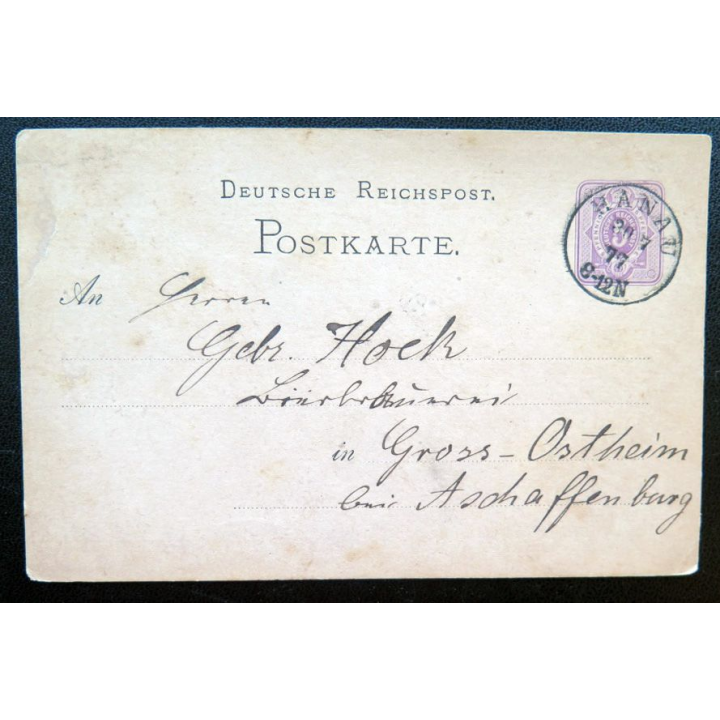 DEUTSCHE REICHSPOST.
POSTKARTE.
HANAU
7
77
8-12N
An Herren
Gebr. Hock
Bierbrauerei
in Gross-Ostheim
bei Aschaffenburg